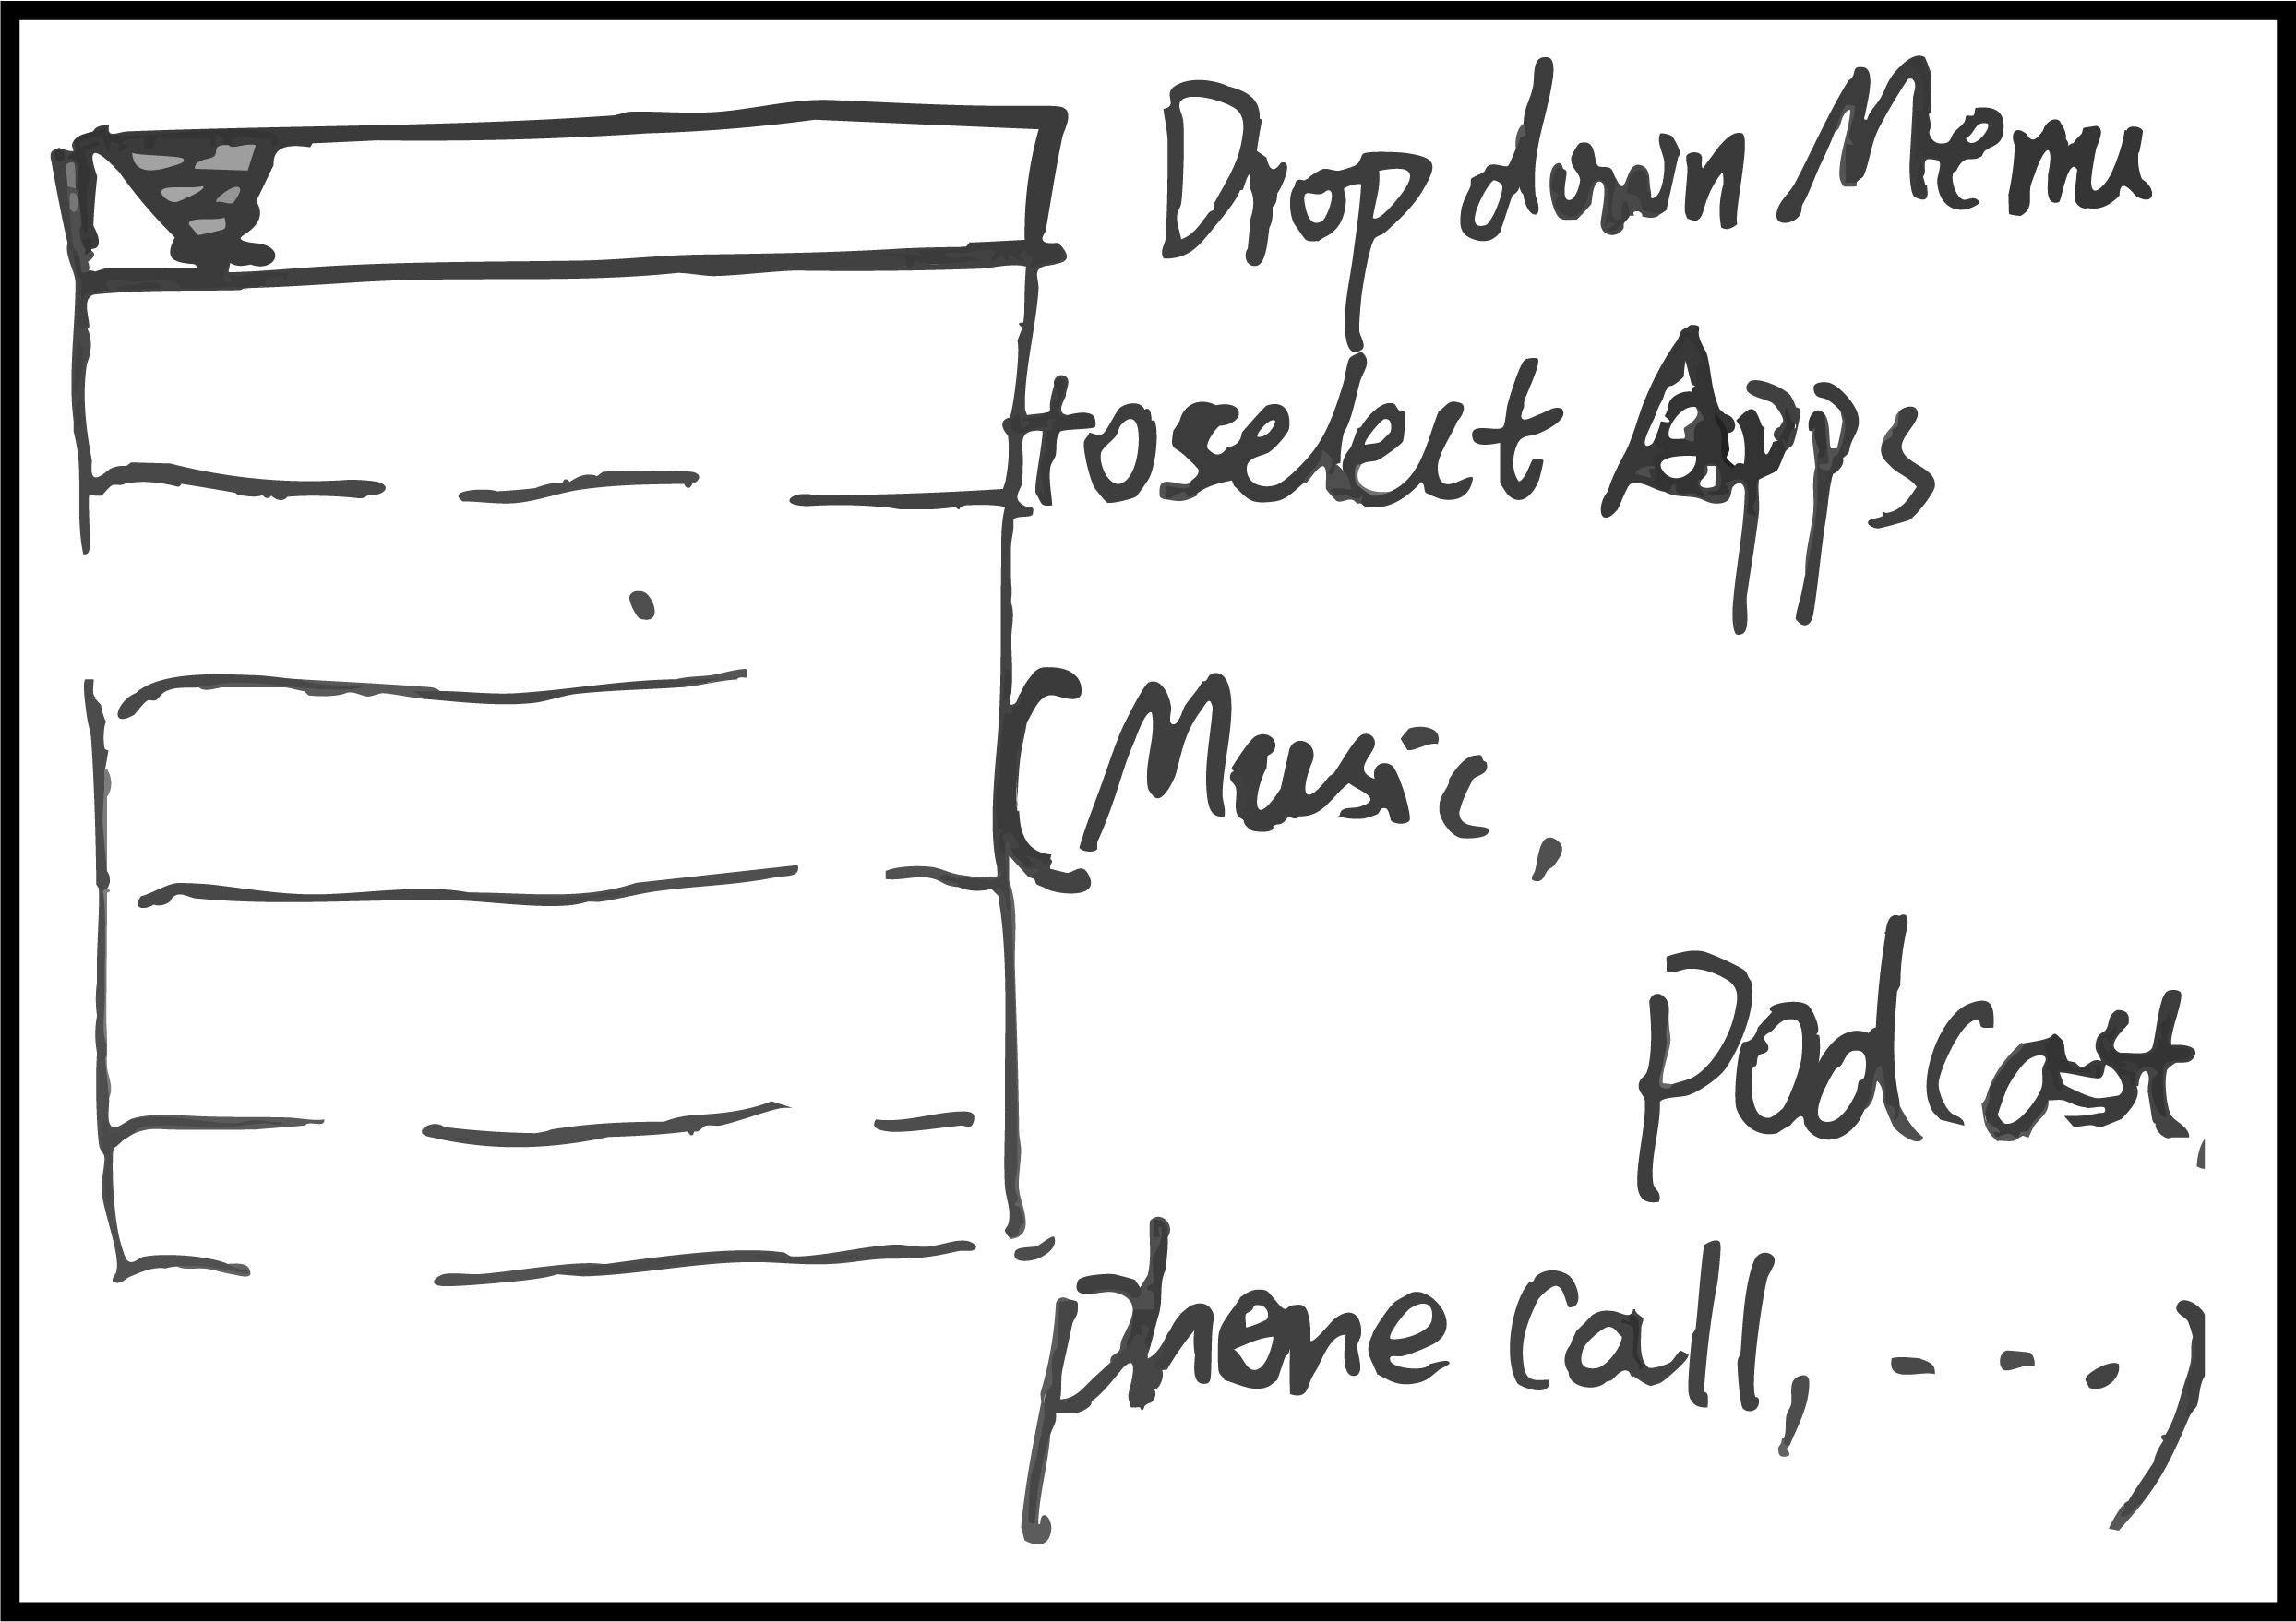 Drop down Menu
to select Apps
(Music,
Podcast,
phone call, ---)